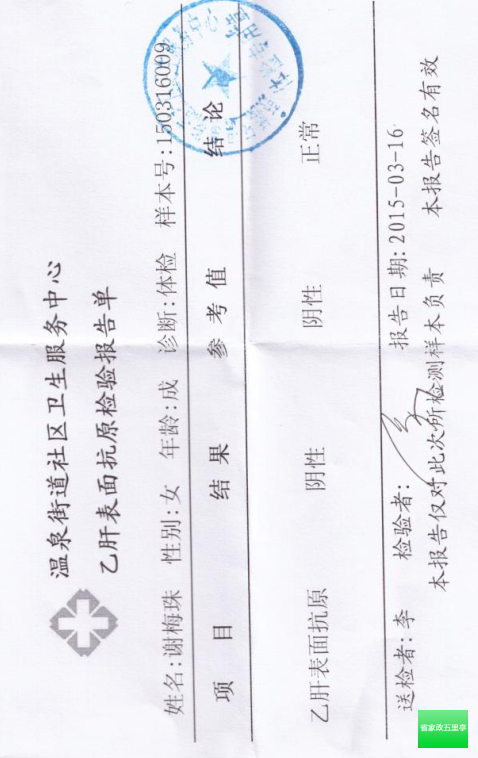 温泉街道社区卫生服务中心
乙肝表面抗原检验报告单
姓名:谢梅珠 性别:女 年龄:成 诊断:体检 样本号:150316009
项 目 结 果 参 考 值 结 论
乙肝表面抗原 阴性 阴性 正常
送检者:李 检验者: 报告日期:2015-03-16
本报告仅对此次所检测样本负责 本报告签名有效
省家政五里亭